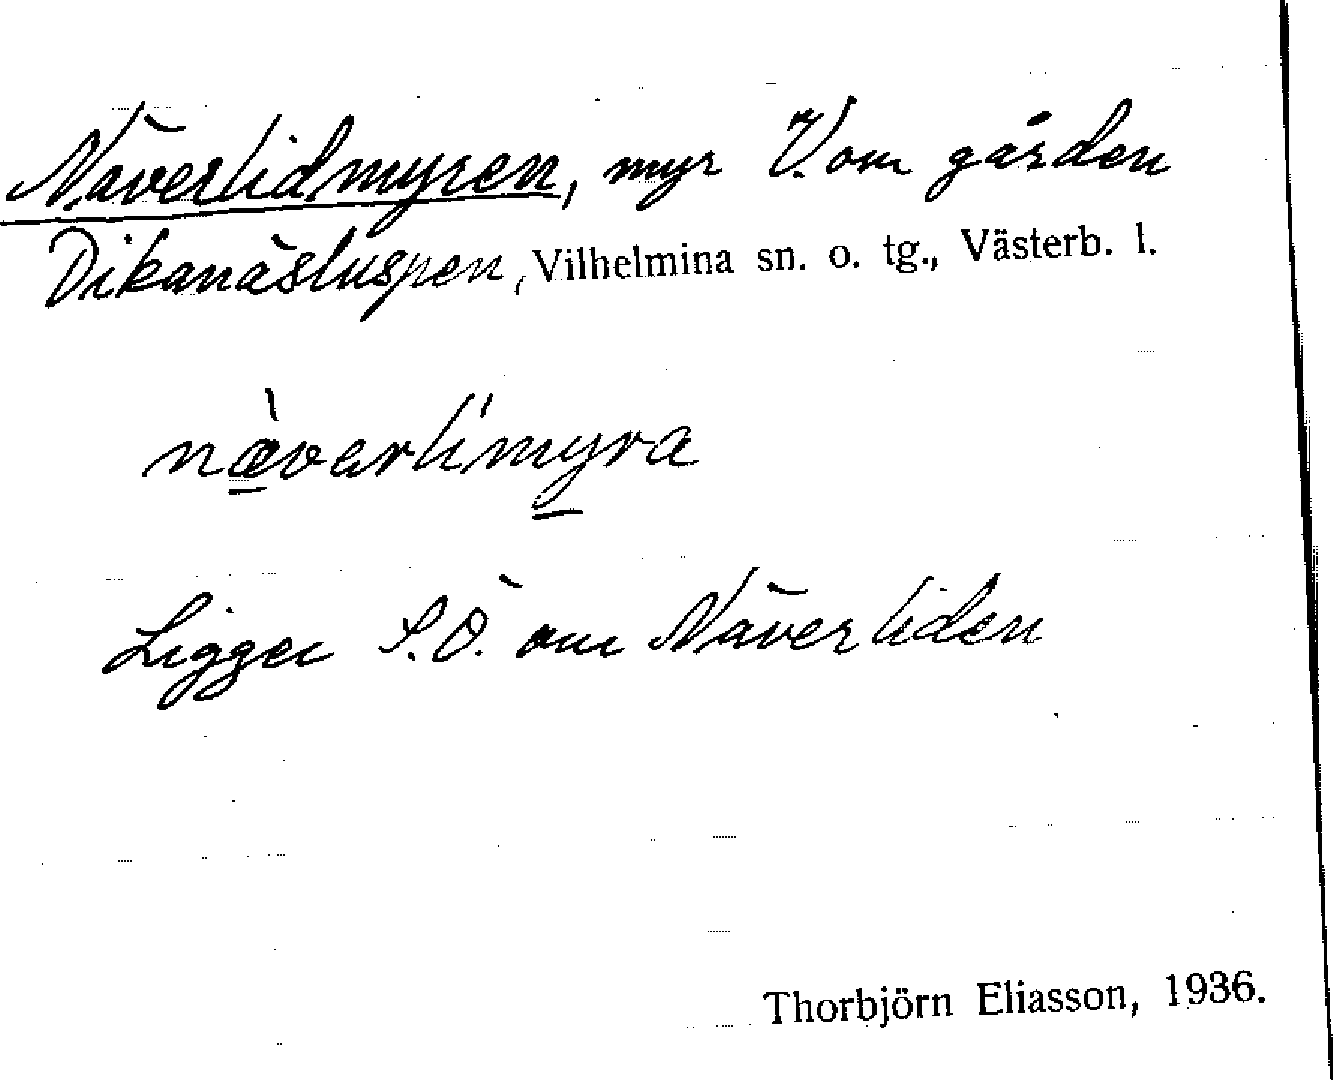 Näverlidmyren, myr V. om gården
Dikanäsluspen, Vilhelmina sn. o. tg., Västerb. l.
nævarlimyra
Ligger S.Ö. om Näverliden
Thorbjörn Eliasson, 1936.